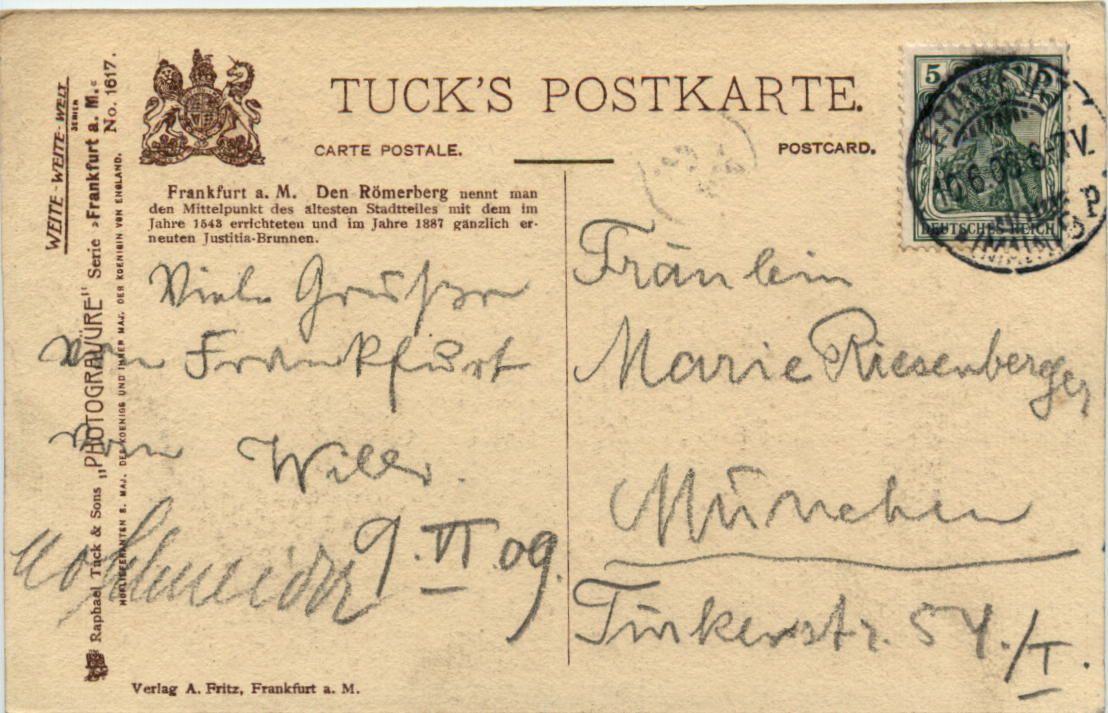 WEITE-WEITE-WELT
SERIEN
Raphael Tuck & Sons „PHOTOGRAVÜRE" Serie »Frankfurt a. M.« No. 1617.
HOFLIEFERANTEN S. MAJ. DES KOENIGS UND IHRER MAJ. DER KOENIGIN VON ENGLAND.
TUCK'S POSTKARTE.
CARTE POSTALE.
POSTCARD.
Frankfurt a. M. Den Römerberg nennt man
den Mittelpunkt des ältesten Stadtteiles mit dem im
Jahre 1543 errichteten und im Jahre 1887 gänzlich er-
neuten Justitia-Brunnen.
5
DEUTSCHES REICH
6-7V.
(MAIN)
Viele Grüße
von Frankfurt
von Willi.
9. VI. 09.
Fräulein
Marie Riesenberger
München
Türkenstr. 54./I.
Verlag A. Fritz, Frankfurt a. M.